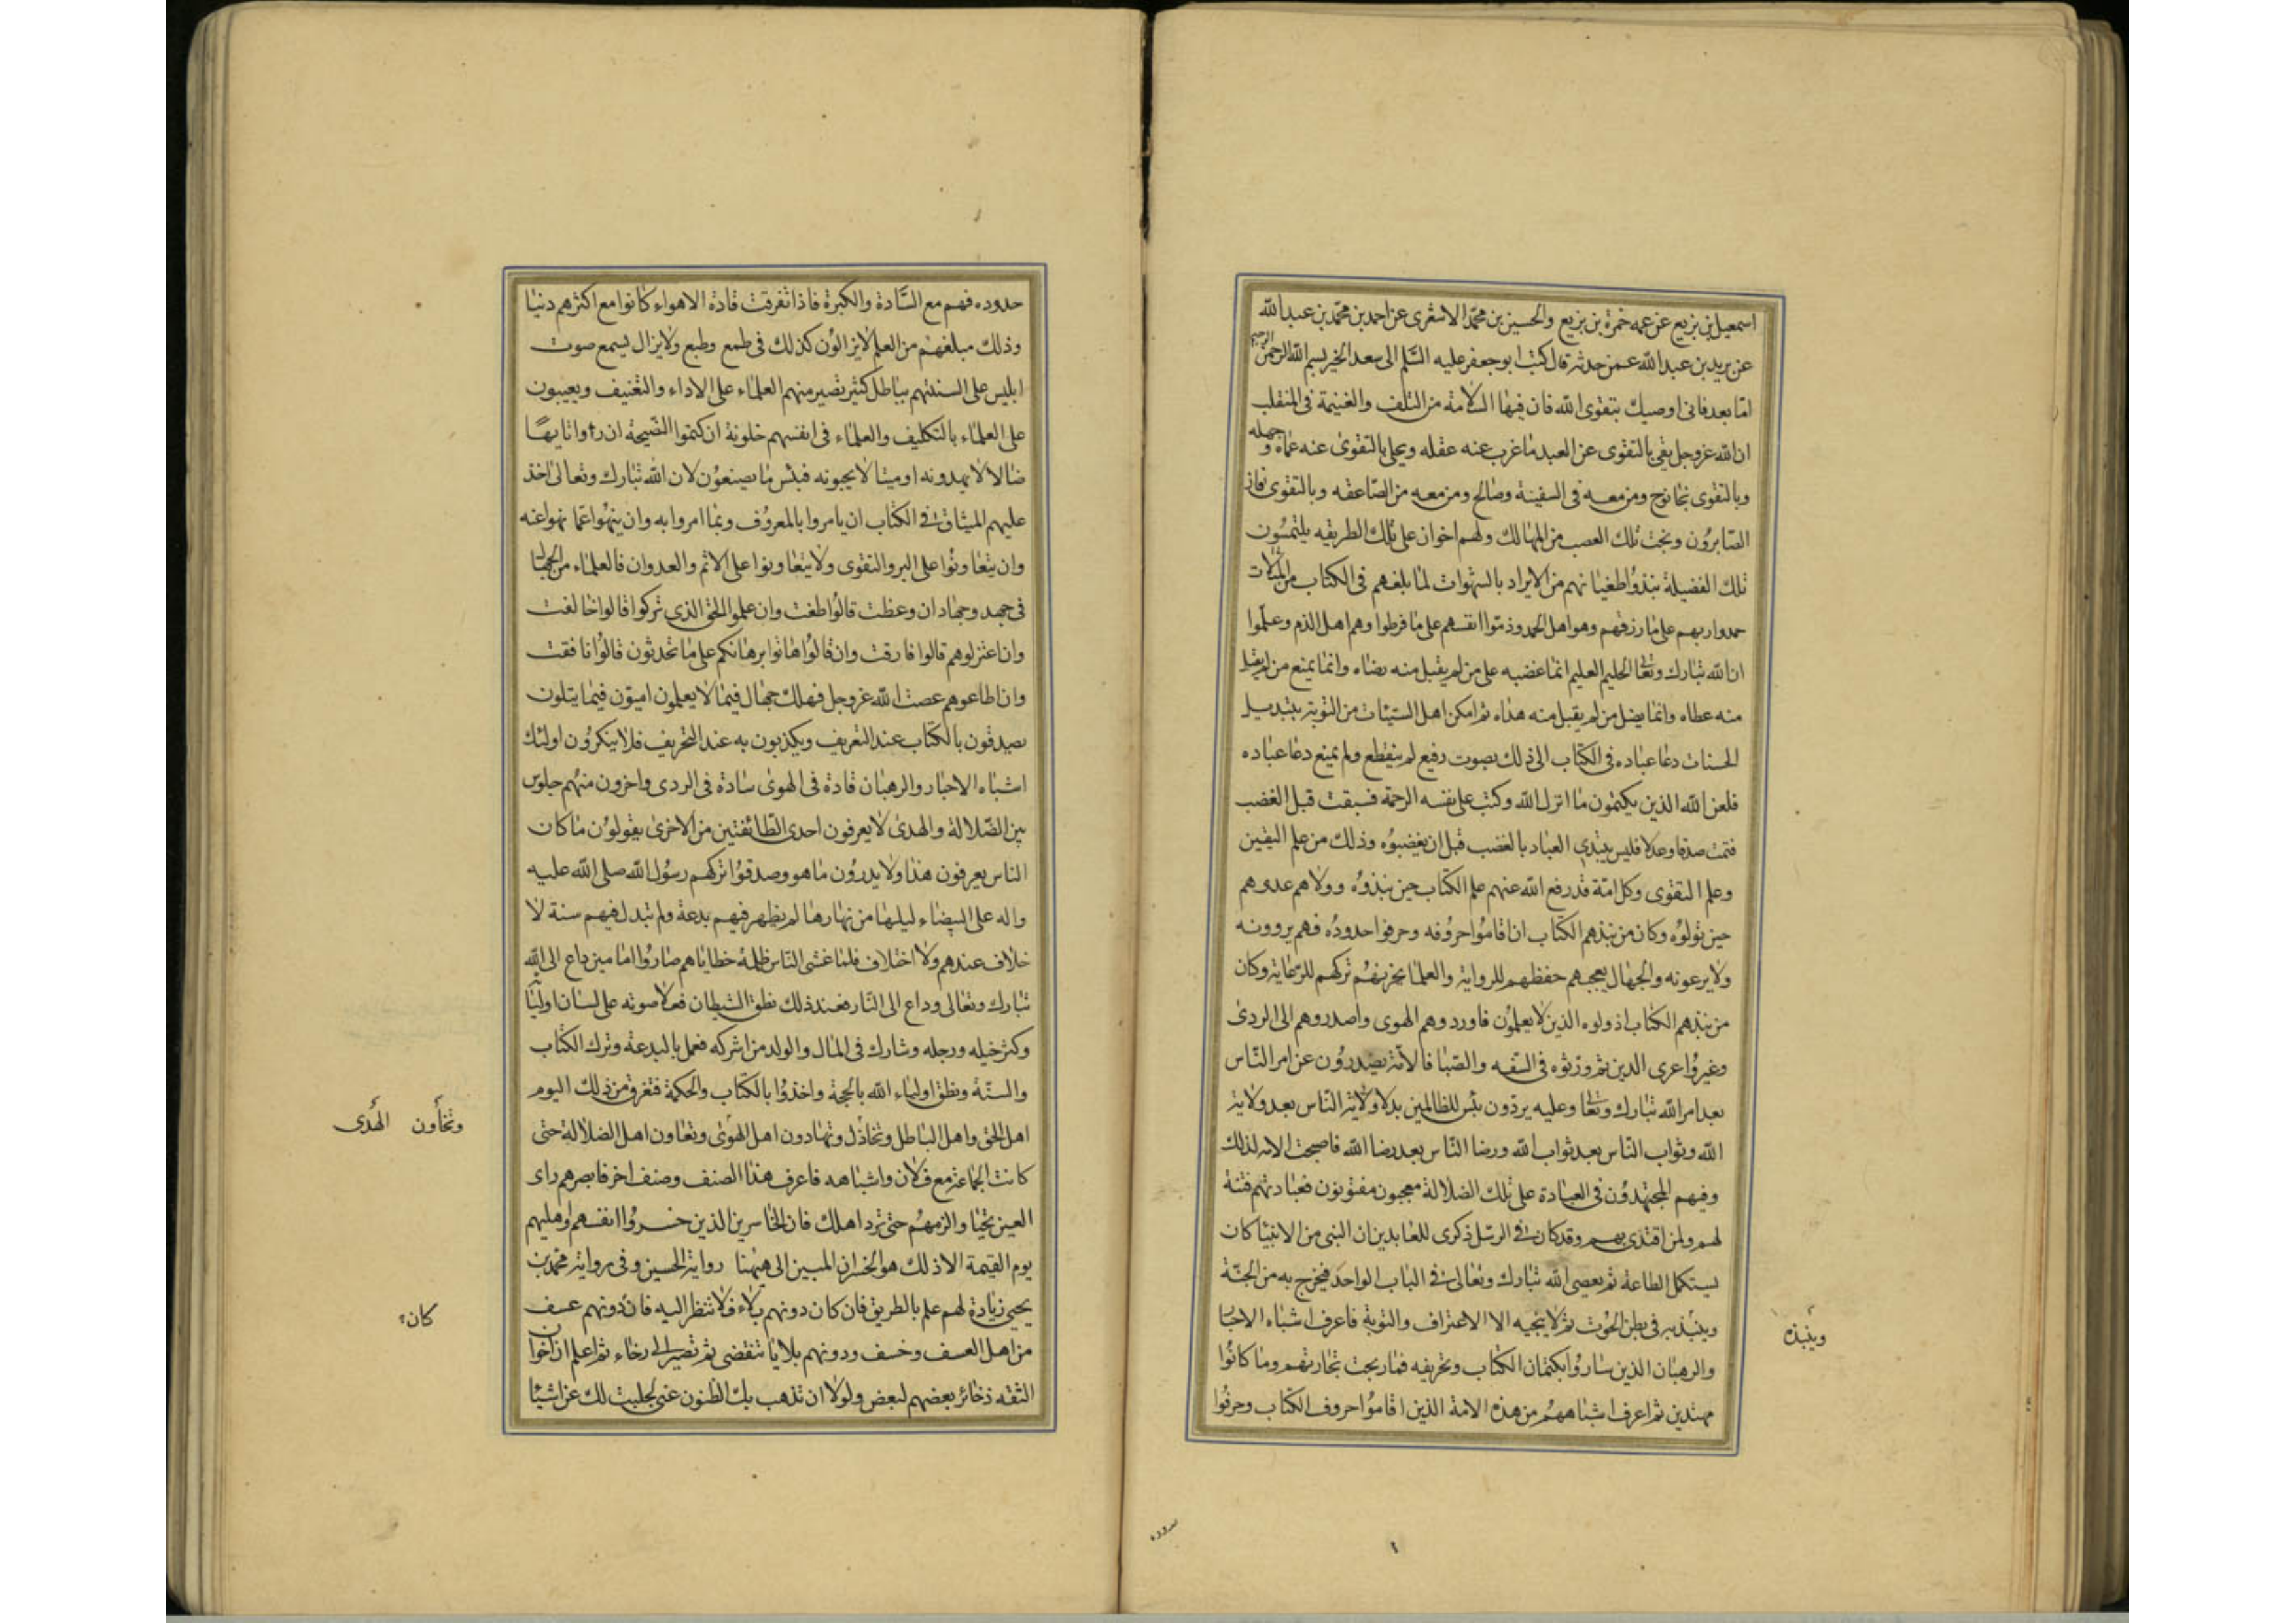 اسمعيل بن بزيع عن عمه حمزة بن بزيع والحسين بن محمد الاشعرى عن احمد بن محمد بن عبد الله
عن يزيد بن عبد الله عمن حدثه قال كتب ابو جعفر عليه السلم الى سعد الخير بسم الله الرحمن الرحيم
اما بعد فانى اوصيك بتقوى الله فان فيها السلامة من التلف والغنيمة فى المنقلب
ان الله عز وجل يقى بالتقوى عن العبد ما عزب عنه عقله ويجلى بالتقوى عنه عماه وجهله
وبالتقوى نجا نوح ومن معه فى السفينة وصالح ومن معه من الصاعقه وبالتقوى فاز
الصابرون ونجت تلك العصب من المهالك ولهم اخوان على تلك الطريقه يلتمسون
تلك الفضيلة نبذوا طغيانهم من الايراد بالشهوات لما بلغهم فى الكتاب من المثلات
حمدوا ربهم على ما رزقهم وهو اهل الحمد وذموا انفسهم على ما فرطوا وهم اهل الذم وعلموا
ان الله تبارك وتعالى الحليم العليم انما غضبه على من لم يقبل منه رضاه وانما يمنع من لم يقبل
منه عطاه وانما يضل من لم يقبل منه هداه ثم امكن اهل السيئات من التوبة بتبديل
الحسنات دعا عباده فى الكتاب الى ذلك بصوت رفيع لم ينقطع ولم يمنع دعا عباده
فلعن الله الذين يكتمون ما انزل الله وكتب على نفسه الرحمة فسبقت قبل الغضب
فتمت صدقا وعدلا فليس يبتدى العباد بالغضب قبل ان يغضبوه وذلك من علم اليقين
وعلم التقوى وكل امة قد رفع الله عنهم علم الكتاب حين نبذوه وولاهم عدوهم
حين تولوه وكان من نبذهم الكتاب ان اقاموا حروفه وحرفوا حدوده فهم يروونه
ولا يرعونه والجهال يعجبهم حفظهم للرواية والعلما يحزنهم تركهم للرعاية وكان
من نبذهم الكتاب اذ ولوه الذين لا يعلمون فاوردوهم الهوى واصدروهم الى الردى
وغيروا عرى الدين ثم ورثوه فى السفه والصبا فالامة يصدرون عن امر الناس
بعد امر الله تبارك وتعالى وعليه يردون بئس للظالمين بدلا ولاية الناس بعد ولاية
الله وثواب الناس بعد ثواب الله ورضا الناس بعد رضا الله فاصبحت الامه لذلك
وفيهم المجتهدون فى العبادة على تلك الضلالة معجبون مفتونون فعبادتهم فتنة
لهم ولمن اقتدى بهم وقد كان فى الرسل ذكرى للعابدين ان النبى من الانبيا كان
يستكمل الطاعة ثم يعصى الله تبارك وتعالى فى الباب الواحد فيخرج به من الجنة
وينبذ به فى بطن الحوت ثم لا ينجيه الا الاعتراف والتوبة فاعرف اشباه الاحبار
وينبذه
والرهبان الذين ساروا بكتمان الكتاب وتحريفه فما ربحت تجارتهم وما كانوا
مهتدين ثم اعرف اشباههم من هذه الامة الذين اقاموا حروف الكتاب وحرفوا
حدوده فهم مع السادة والكبرة فاذا تفرقت قادة الاهواء كانوا مع اكثرهم دنيا
وذلك مبلغهم من العلم لا يزالون كذلك فى طمع وطبع ولا يزال يسمع صوت
ابليس على السنتهم بباطل كثير يصير منهم العلماء على الاداء والتعنيف ويعيبون
على العلماء بالتكليف والعلماء فى انفسهم خلونة ان كتموا النصيحة ان راوا تايها
ضالا لا يهدونه او ميتا لا يحيونه فبئس ما يصنعون لان الله تبارك وتعالى اخذ
عليهم الميثاق فى الكتاب ان يامروا بالمعروف وبما امروا به وان ينهوا عما نهوا عنه
وان يتعاونوا على البر والتقوى ولا يتعاونوا على الاثم والعدوان فالعلماء من الجهال
فى جهد وجهاد ان وعظت قالوا طغت وان علموا الحق الذى تركوا قالوا خالفت
وان اعتزلوهم قالوا فارقت وان قالوا هاتوا برهانكم على ما تحدثون قالوا نافقت
وان اطاعوهم عصت الله عز وجل فهلك جهال فيما لا يعلمون اميون فيما يتلون
يصدقون بالكتاب عند التعريف ويكذبون به عند التحريف فلا ينكرون اولئك
اشباه الاحبار والرهبان قادة فى الهوى سادة فى الردى واخرون منهم جلوس
بين الضلالة والهدى لا يعرفون احدى الطائفتين من الاخرى يقولون ما كان
الناس يعرفون هذا ولا يدرون ما هو وصدقوا تركهم رسول الله صلى الله عليه
واله على البيضاء ليلها من نهارها لم يظهر فيهم بدعة ولم تبدل فيهم سنة لا
خلاف عندهم ولا اختلاف فلما غشى الناس ظلمة خطاياهم صاروا امامين داع الى الله
تبارك وتعالى وداع الى النار فعند ذلك نطق الشيطان فعلا صوته على لسان اوليائه
وكثر خيله ورجله وشارك فى المال والولد من اشركه فعمل بالبدعة وترك الكتاب
والسنة ونطق اولياء الله بالحجة واخذوا بالكتاب والحكمة فتفرق من ذلك اليوم
اهل الحق واهل الباطل وتخاذل وتهادون اهل الهوى وتعاون اهل الضلالة حتى
وتخاون الهدى
كانت الجماعة مع فلان واشباهه فاعرف هذا الصنف وصنف اخر فابصرهم راى
العين تحيا والزمهم حتى ترد اهلك فان الخاسرين الذين خسروا انفسهم واهليهم
يوم القيمة الا ذلك هو الخسران المبين الى ههنا رواية الحسين وفى رواية محمد بن
يحيى زيادة لهم علم بالطريق فان كان دونهم بلاء فلا تنظر اليه فان دونهم عسف
كان
من اهل العسف وخسف ودونهم بلايا تنقضى ثم تصير الى رخاء ثم اعلم ان اخوان
الثقه ذخائر بعضهم لبعض ولولا ان تذهب بك الظنون عنى لجلبت لك عن اشيا